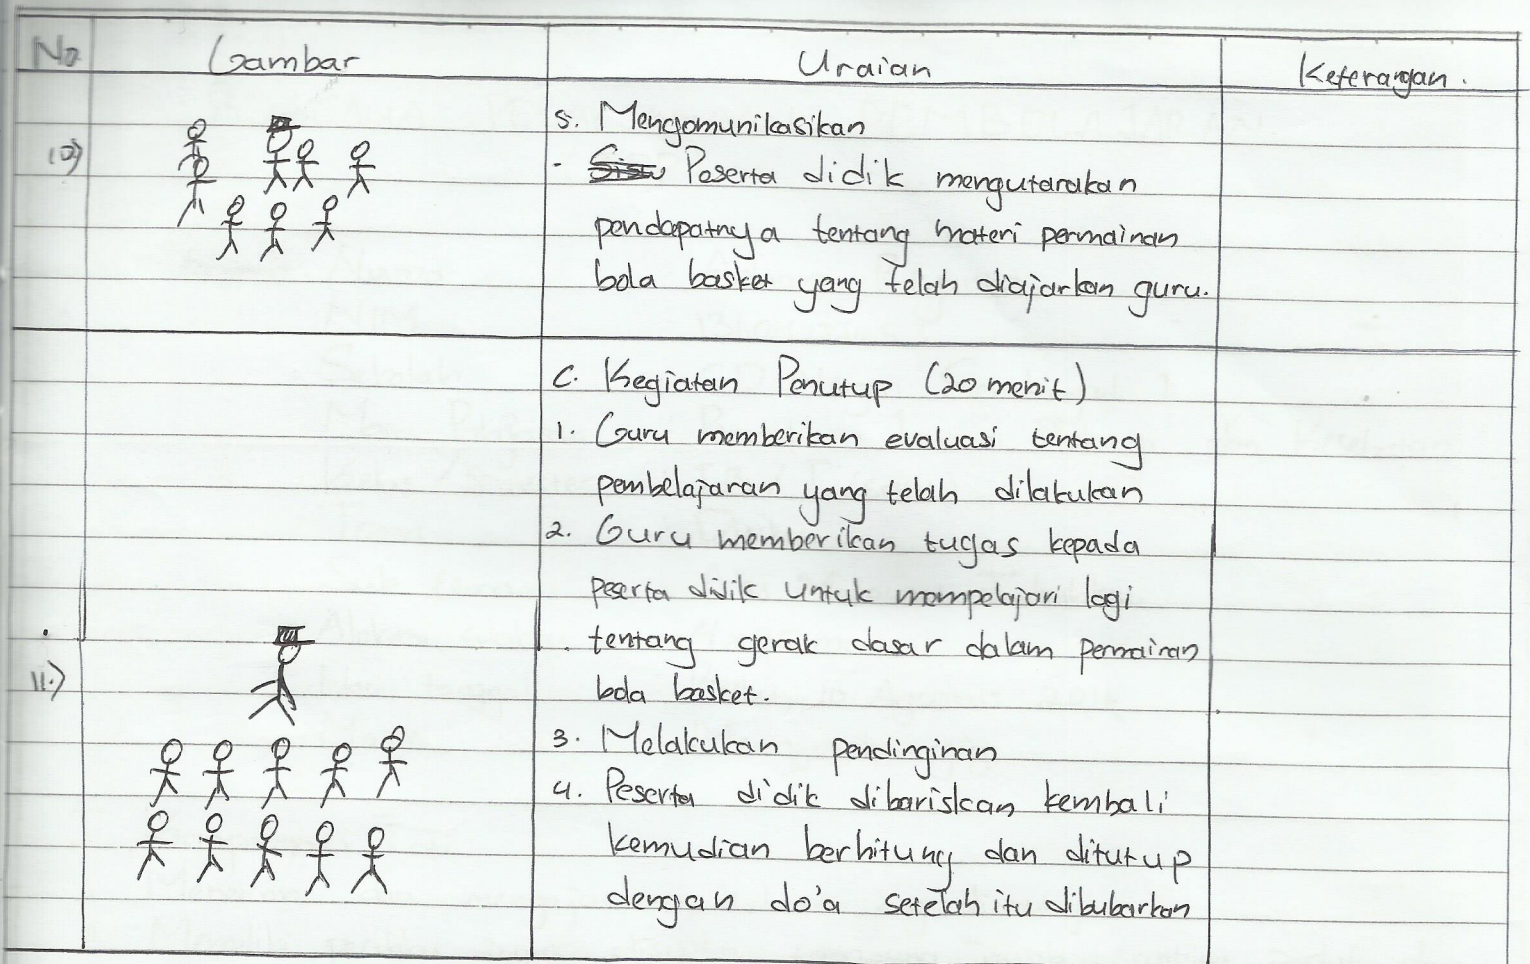 No Gambar Uraian Keterangan.
10) 5. Mengomunikasikan
- Peserta didik mengutarakan
pendapatnya tentang materi permainan
bola basket yang telah diajarkan guru.
C. Kegiatan Penutup (20 menit)
1. Guru memberikan evaluasi tentang
pembelajaran yang telah dilakukan
2. Guru memberikan tugas kepada
peserta didik untuk mempelajari lagi
tentang gerak dasar dalam permainan
11.) bola basket.
3. Melakukan pendinginan
4. Peserta didik dibariskan kembali
kemudian berhitung dan ditutup
dengan do'a setelah itu dibubarkan